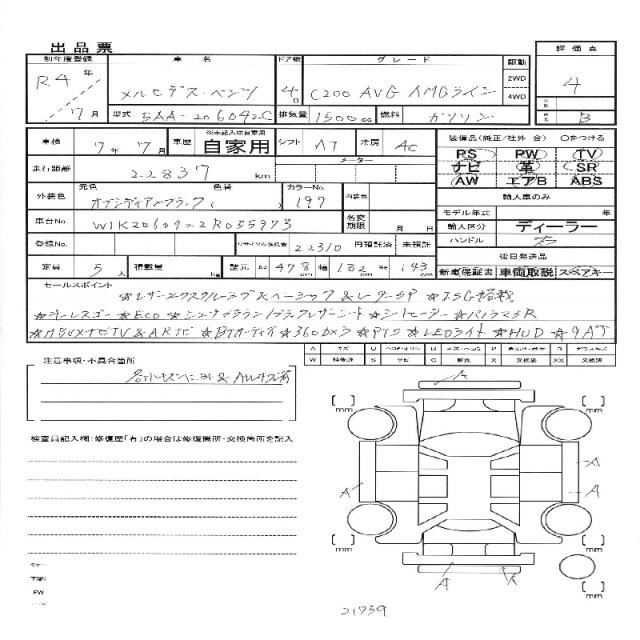 出品票
初年度登録 車名 ドア数 グレード 駆動 評価点
R4年 メルセデス・ベンツ 4D C200 AVG AMGライン 2WD 4
7月 型式 5AA-206042C 排気量 1500cc 燃料 ガソリン 4WD B
車検 7年7月 車歴 ※未記入は自家用 自家用 シフト AT 冷房 AC 装備品(純正/社外 合) ○をつける
走行距離 22837 km メーター PS PW TV
ナビ 革 SR
外装色 元色 オブシディアンブラック 色替 ( カラーNo. 197 内装色 AW エアB ABS
輸入車のみ
車台No. W1K2060422R055973 名変期限 月 日 モデル年式 年
輸入区分 ディーラー
登録No. リサイクル預託金 22310 円預託済 未預託 ハンドル 右
後日発送品
定員 5人 積載量 kg 諸元 長さ 478cm 幅 182cm 高さ 143cm 新車保証書 車両取説 スペアキー
セールスポイント
☆レザーエクスクルーシブ&ベーシック&レザーSP ☆ISG搭載
☆キーレスゴー ☆ECO ☆シエナブラウン/ブラックレザーシート ☆シートヒーター ☆パノラマSR
☆MBUXナビTV&ARナビ ☆BTオーディオ ☆360°カメラ ☆PTS ☆LEDライト ☆HUD ☆9AT
注意事項・不具合箇所
検査員記入欄:修復歴「有」の場合は修復箇所・交換箇所を記入
A
[ ] mm [ ] mm
A
A A
[ ] mm [ ] mm
A A
21739